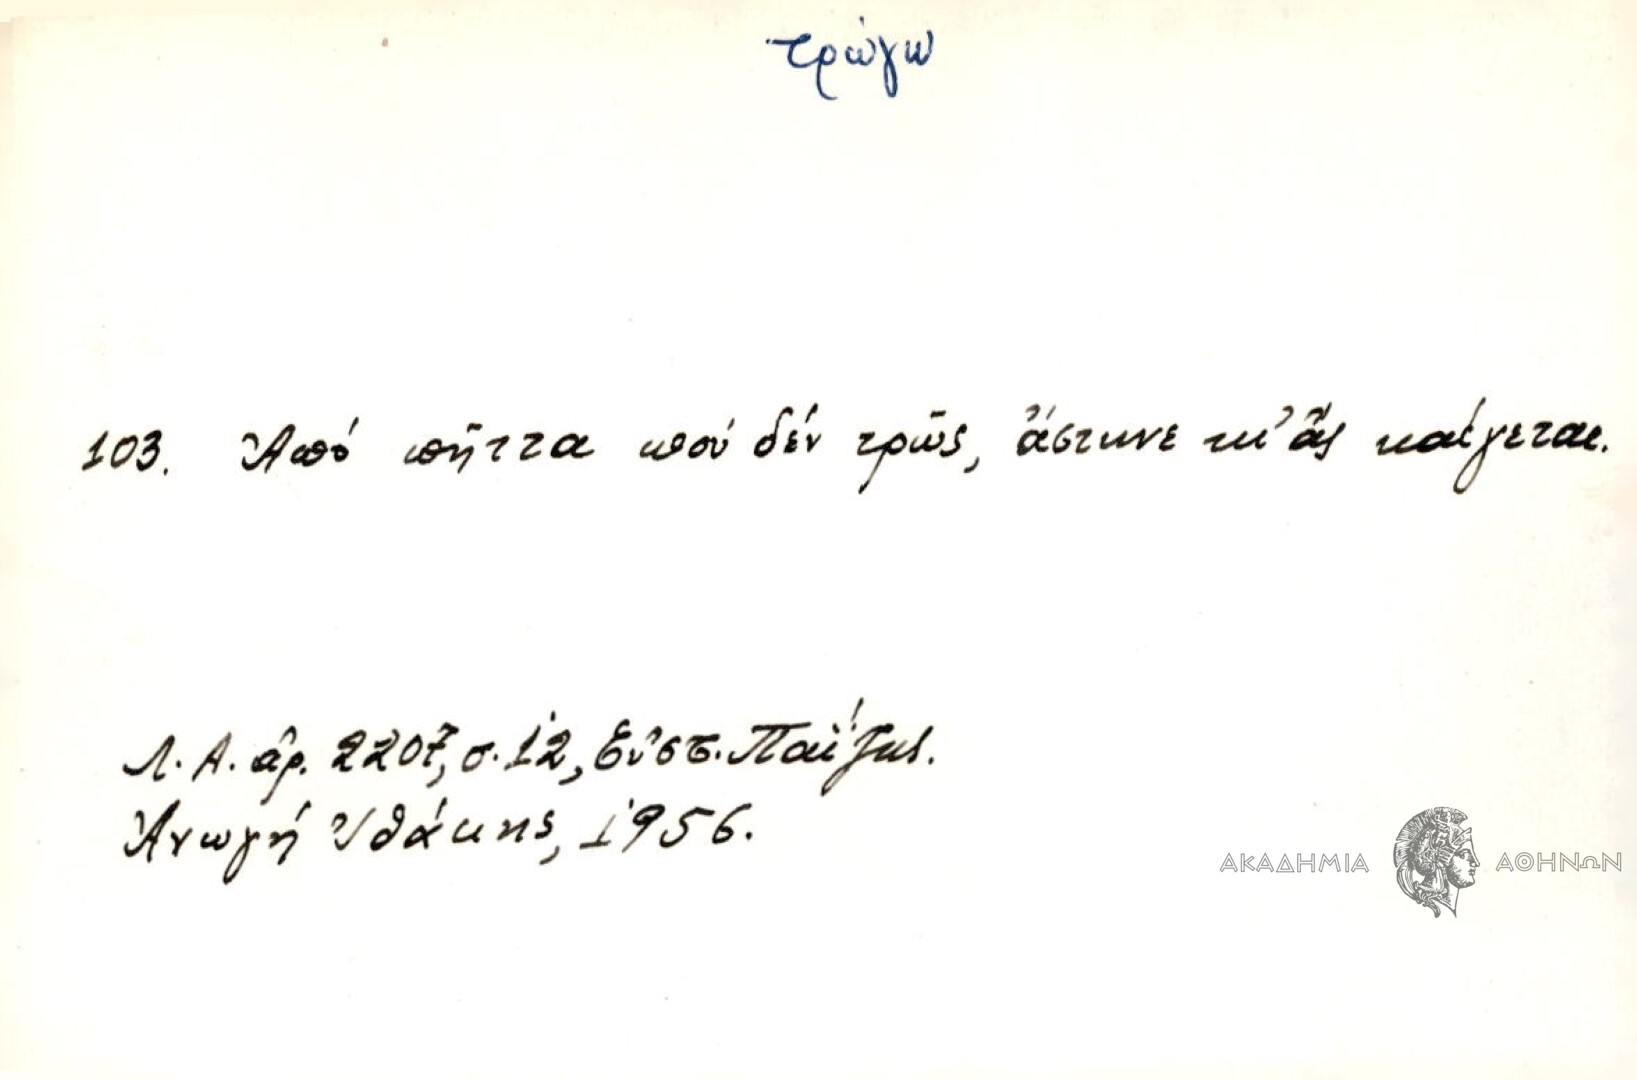 τρώγω
103. Ἀπό πῆττα πού δέν τρῶς, ἄστηνε κι' ἄς καίγεται.
Λ. Α. ἀρ. 2207, σ. 12, Εὐστ. Παΐζης.
Ἀνωγή Ἰθάκης, 1956.
ΑΚΑΔΗΜΙΑ ΑΘΗΝΩΝ